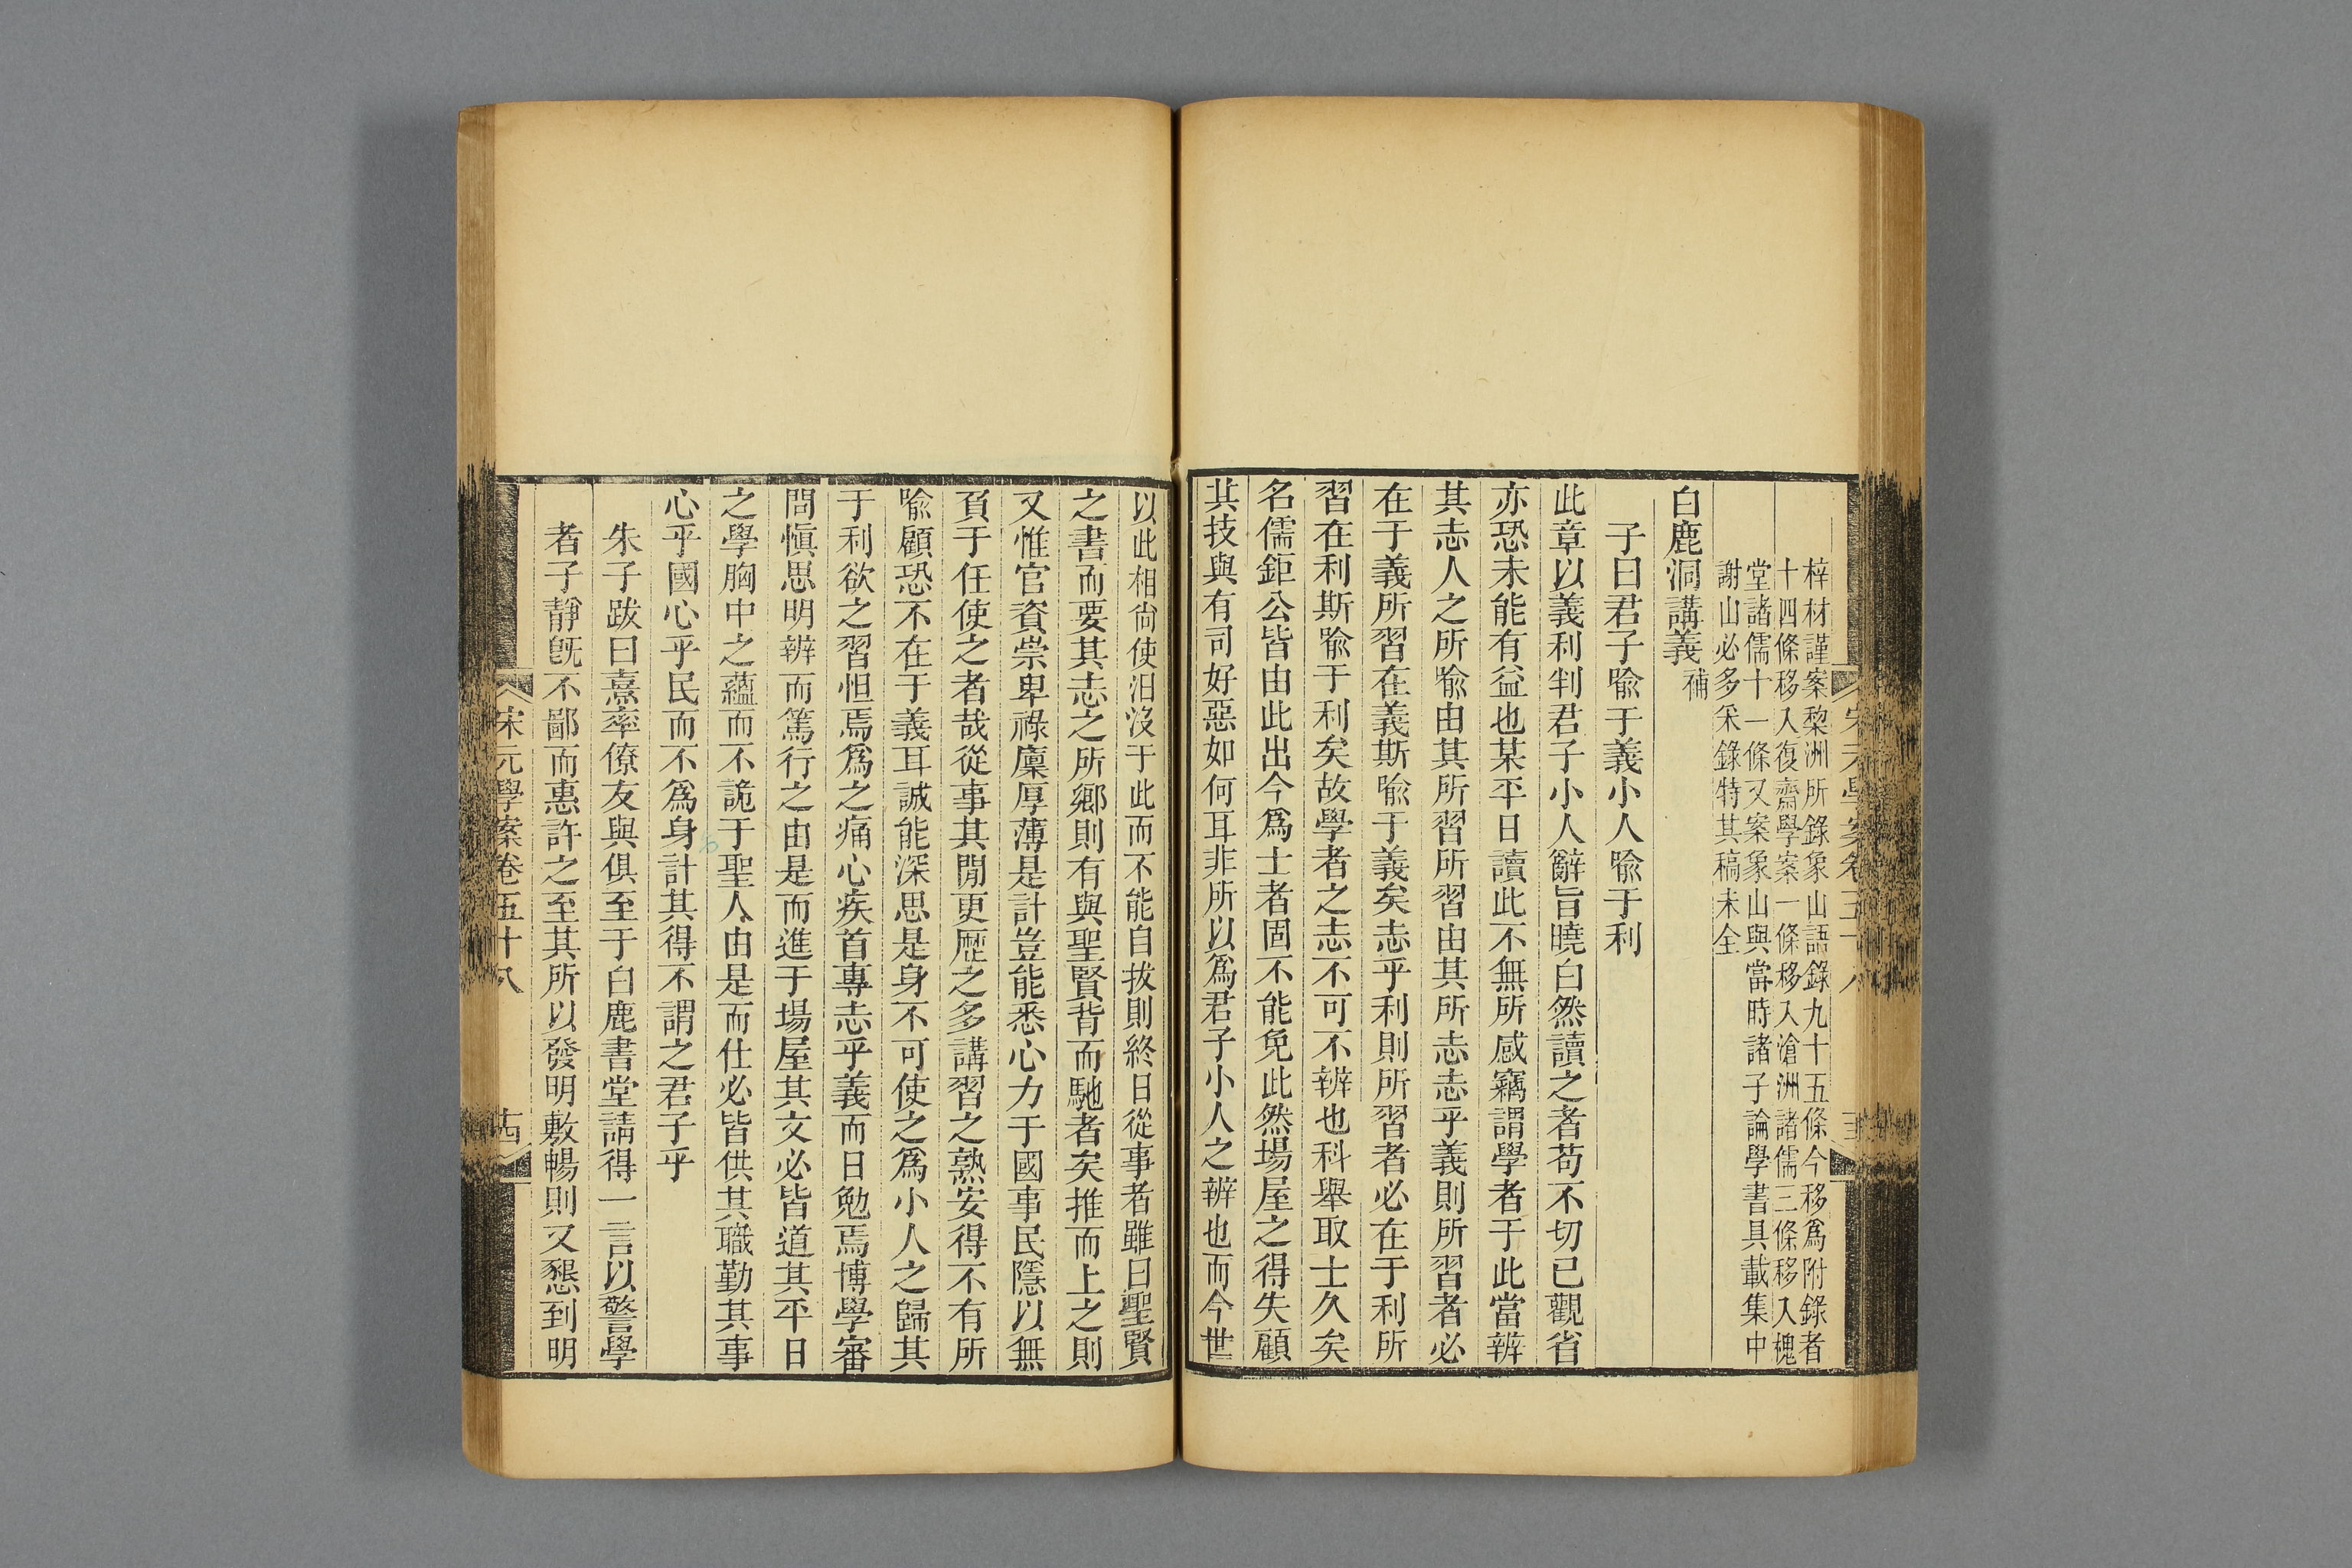 宋元學案卷五十八
梓材謹案棃洲所錄象山語錄九十五條今移爲附錄者
十四條移入復齋學案一條移入滄洲諸儒三條移入槐
堂諸儒十一條又案象山與當時諸子論學書具載集中
謝山必多采錄特其稿未全
白鹿洞講義補
子曰君子喩于義小人喩于利
此章以義利判君子小人辭旨曉白然讀之者苟不切己觀省
亦恐未能有益也某平日讀此不無所感竊謂學者于此當辨
其志人之所喩由其所習所習由其所志志乎義則所習者必
在于義所習在義斯喩于義矣志乎利則所習者必在于利所
習在利斯喩于利矣故學者之志不可不辨也科舉取士久矣
名儒鉅公皆由此出今爲士者固不能免此然場屋之得失顧
其技與有司好惡如何耳非所以爲君子小人之辨也而今世
以此相尚使汨沒于此而不能自拔則終日從事者雖曰聖賢
之書而要其志之所鄉則有與聖賢背而馳者矣推而上之則
又惟官資崇卑祿廩厚薄是計豈能悉心力于國事民隱以無
負于任使之者哉從事其閒更歷之多講習之熟安得不有所
喩顧恐不在于義耳誠能深思是身不可使之爲小人之歸其
于利欲之習怛焉爲之痛心疾首專志乎義而日勉焉博學審
問愼思明辨而篤行之由是而進于場屋其文必皆道其平日
之學胸中之蘊而不詭于聖人由是而仕必皆供其職勤其事
心乎國心乎民而不爲身計其得不謂之君子乎
朱子跋曰熹率僚友與俱至于白鹿書堂請得一言以警學
者子靜旣不鄙而惠許之至其所以發明敷暢則又懇到明
宋元學案卷五十八
十四